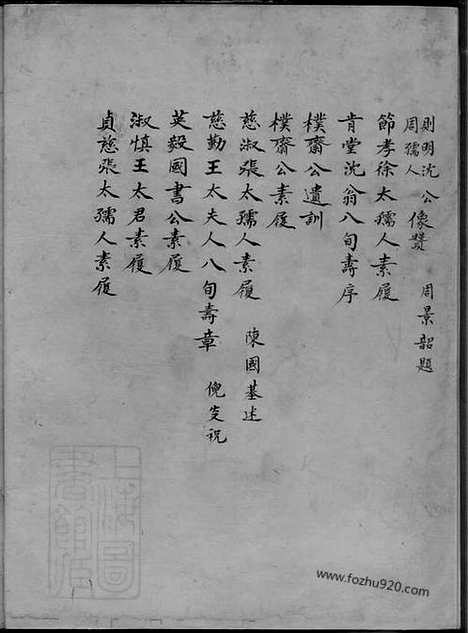 則明沈公周孺人像贊 周景韶題
節孝徐太孺人素履
肯堂沈翁八旬壽序
樸齋公遺訓
樸齋公素履
慈淑張太孺人素履 陳國基述
慈勤王太夫人八旬壽章 倪旻祝
英毅國書公素履
淑慎王太君素履
貞慈張太孺人素履
上海圖書館藏
www.fozhu920.com